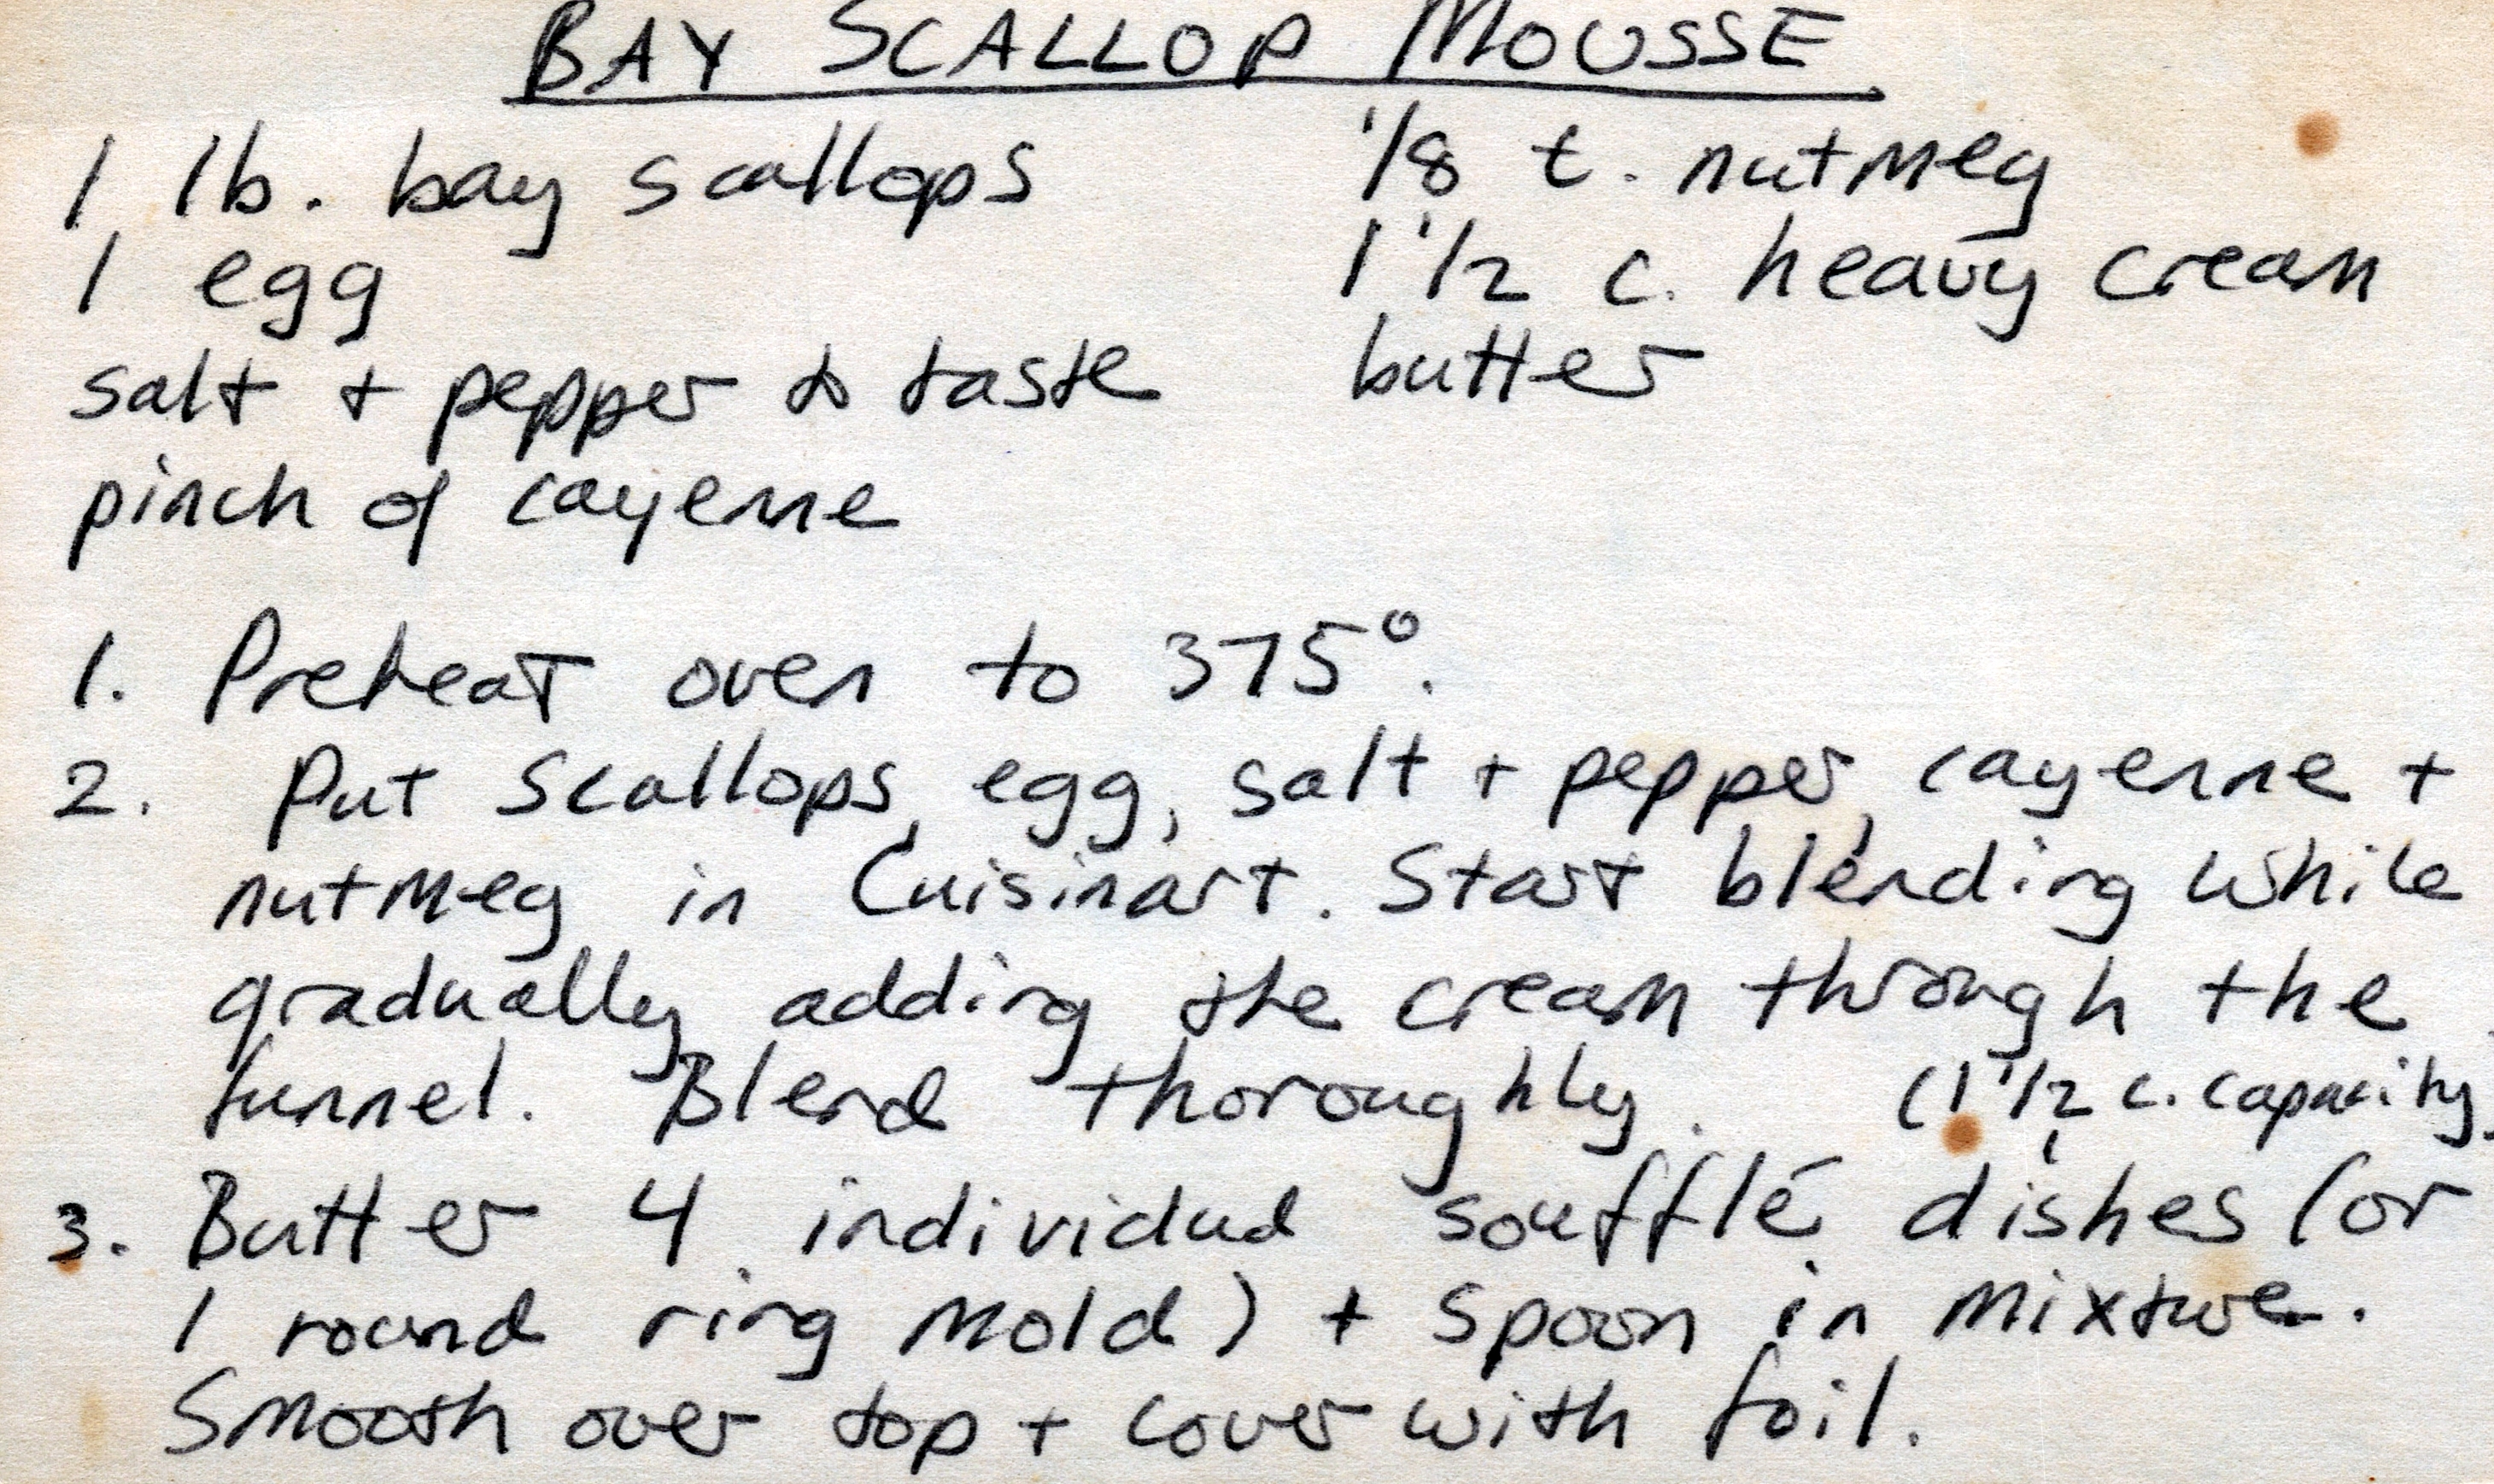 BAY SCALLOP MOUSSE
1 lb. bay scallops
1 egg
salt + pepper to taste
pinch of cayenne
1/8 t. nutmeg
1 1/2 c. heavy cream
butter
1. Preheat oven to 375°.
2. Put scallops, egg, salt + pepper, cayenne +
nutmeg in Cuisinart. Start blending while
gradually adding the cream through the
funnel. Blend thoroughly.
(1 1/2 c. capacity)
3. Butter 4 individual soufflé dishes (or
1 round ring mold) + spoon in mixture.
Smooth over top + cover with foil.